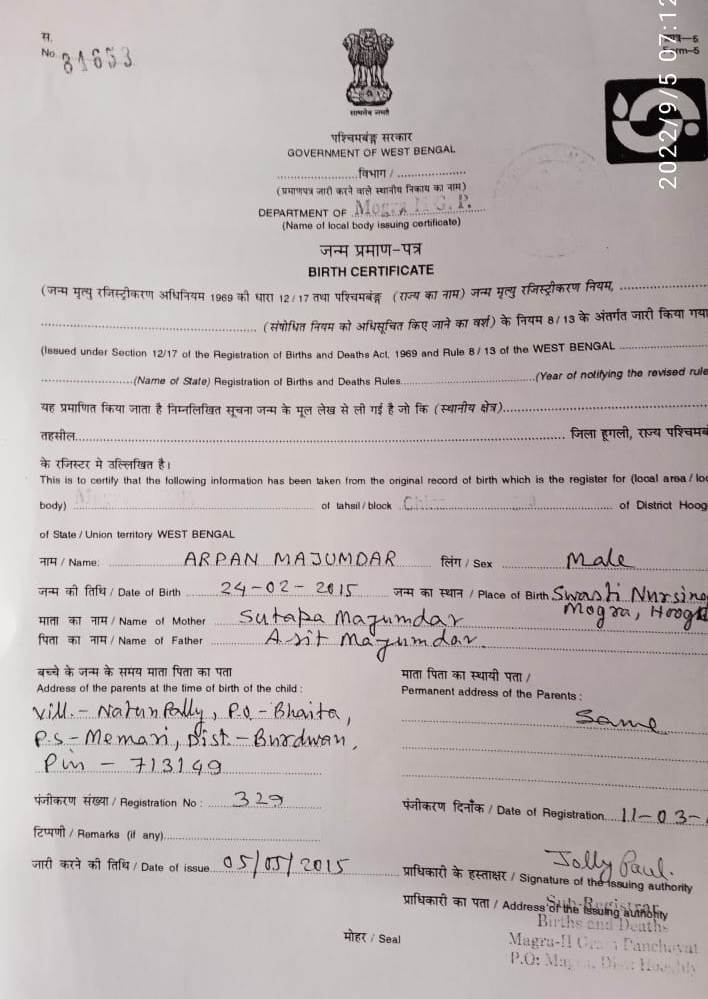 स.
No 31653
सत्यमेव जयते
2022/9/5 07:12
पश्चिमबंङ्ग सरकार
GOVERNMENT OF WEST BENGAL
विभाग /
(प्रमाणपत्र जारी करने वाले स्थानीय निकाय का नाम)
DEPARTMENT OF Mogra II G. P.
(Name of local body issuing certificate)
जन्म प्रमाण-पत्र
BIRTH CERTIFICATE
(जन्म मृत्यु रजिस्ट्रीकरण अधिनियम 1969 की धारा 12 / 17 तथा पश्चिमबंङ्ग (राज्य का नाम) जन्म मृत्यु रजिस्ट्रीकरण नियम,
(संषोधित नियम को अधिसूचित किए जाने का वर्श) के नियम 8 / 13 के अंतर्गत जारी किया गया
(Issued under Section 12/17 of the Registration of Births and Deaths Act, 1969 and Rule 8 / 13 of the WEST BENGAL
(Name of State) Registration of Births and Deaths Rules (Year of notifying the revised rule
यह प्रमाणित किया जाता है निम्नलिखित सूचना जन्म के मूल लेख से ली गई है जो कि (स्थानीय क्षेत्र)
तहसील जिला हूगली, राज्य पश्चिमबं
के रजिस्टर मे उल्लिखित है।
This is to certify that the following information has been taken from the original record of birth which is the register for (local area / loc
body) of tahsil / block of District Hoog
of State / Union territory WEST BENGAL
नाम / Name: ARPAN MAJUMDAR लिंग / Sex Male
जन्म की तिथि / Date of Birth 24-02-2015 जन्म का स्थान / Place of Birth Swasti Nursing
Mogra, Hoogl
माता का नाम / Name of Mother Sutapa Mazumdar
पिता का नाम / Name of Father Asit Mazumdar
बच्चे के जन्म के समय माता पिता का पता
Address of the parents at the time of birth of the child :
माता पिता का स्थायी पता /
Permanent address of the Parents :
Vill.- Natun Pally, P.O - Bhaita,
Same
P.S - Memari, Dist.- Burdwan,
Pin - 713149
पंजीकरण संख्या / Registration No : 329 पंजीकरण दिनाँक / Date of Registration 11-03-
टिप्पणी / Remarks (if any)
जारी करने की तिथि / Date of issue 05/05/2015
Jolly Paul.
प्राधिकारी के हस्ताक्षर / Signature of the issuing authority
प्राधिकारी का पता / Address of the issuing authority
Sub-Registrar
Births and Deaths
Magra-II Panchayat
P.O:
मोहर / Seal